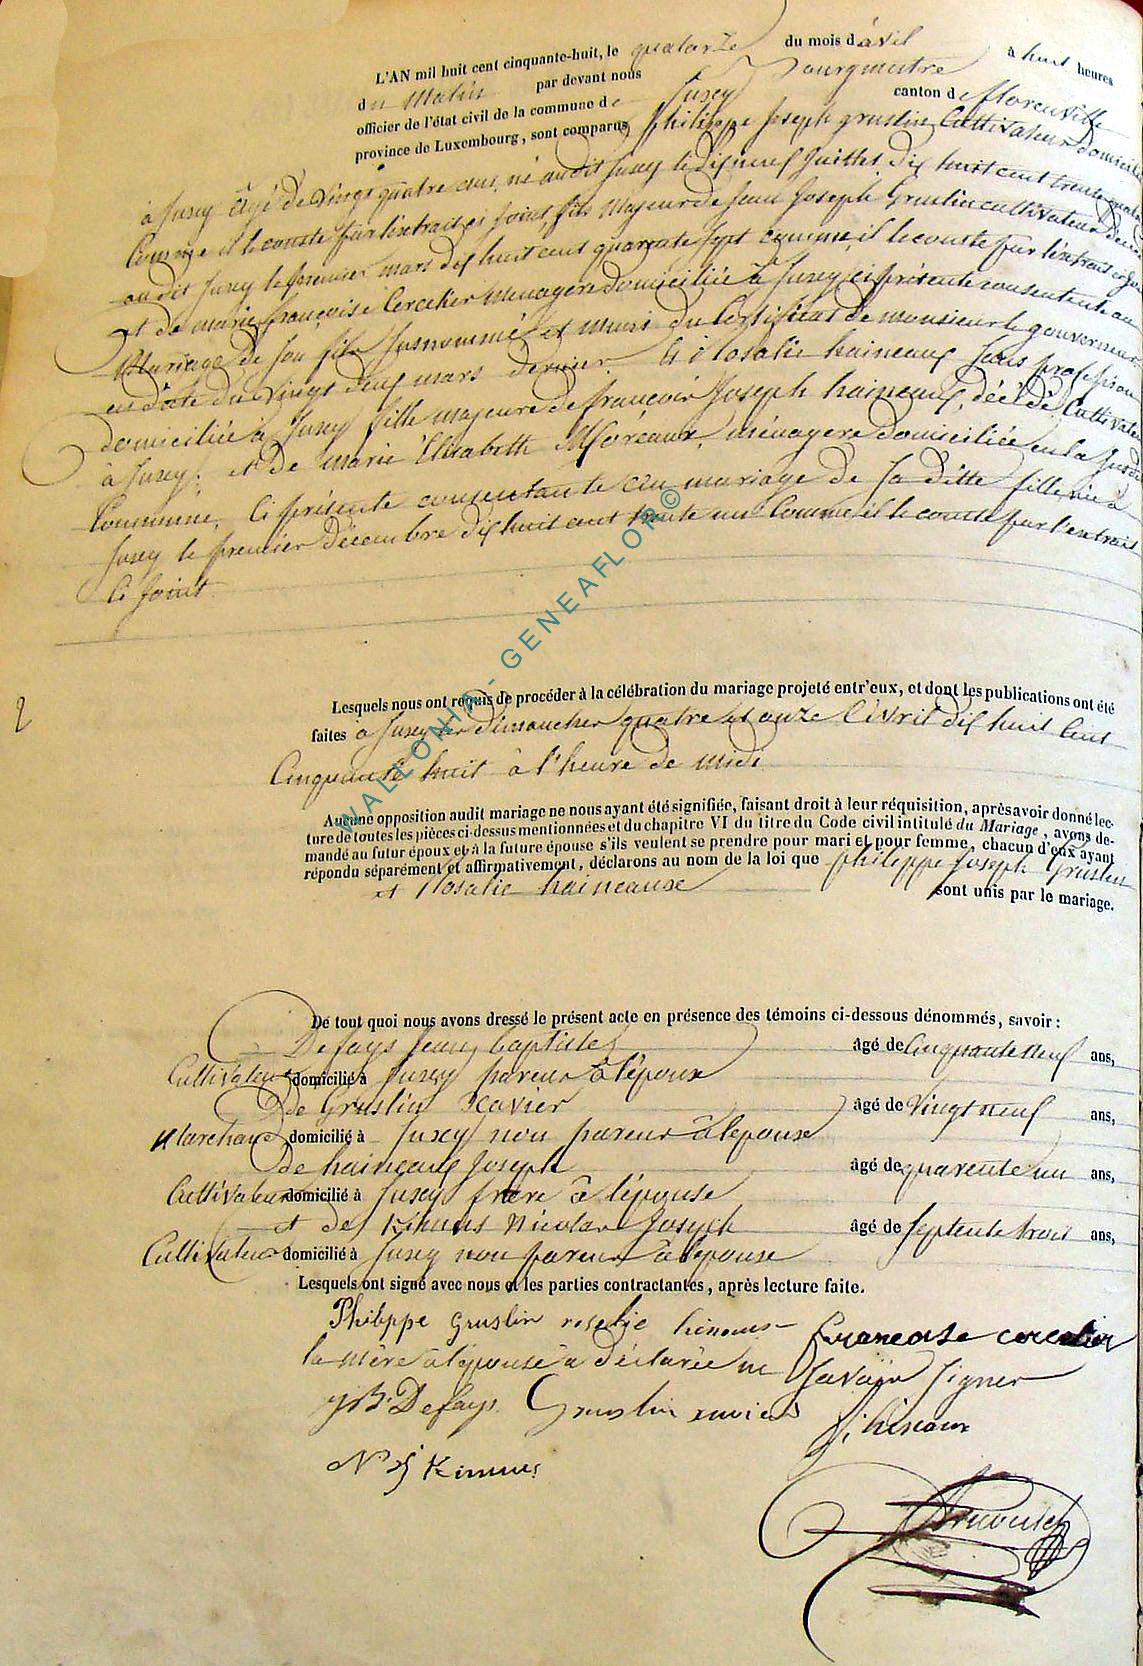 L'AN mil huit cent cinquante-huit, le quatorze du mois d'avril à huit heures
du Matin par devant nous Bourgmestre
officier de l'état civil de la commune de Jusey canton de florenville
province de Luxembourg, sont comparus Philippe Joseph gruslin Cultivateur domicilié
à Jusey âgé de vingt quatre ans, né audit Jusey le dix neuf Juillet dix huit cent trente
Comme il le conste par l'extrait ci Joint, fils Majeur de Jean Joseph Gruslin cultivateur décédé
audit Jusey le premier mars dix huit cent quarante sept comme il le conste par l'extrait ci Joint
et de marie françoise Cercelier Ménagère domiciliée à Jusey ci présente consentente au
Mariage de son fils susnommé et muni du Certificat de monsieur le gouverneur
en date du vingt deux mars dernier. Et Rosalie haineaux sans profession
domiciliée à Jusey fille majeure de françois Joseph haineaux, décédé Cultivateur
à Jusey; et De marie Elisabeth Moreaux, ménagère domiciliée en la susdite
Commune, Ci présente consentante au mariage de sa ditte fille née à
Jusey le premier décembre dix huit cent trente un Comme il le conste par l'extrait
Ci Joint.
Lesquels nous ont requis de procéder à la célébration du mariage projeté entr'eux, et dont les publications ont été
faites à Jusey les dimanches quatre et onze Avril dix huit Cent
Cinquante huit à l'heure de midi
Aucune opposition audit mariage ne nous ayant été signifiée, faisant droit à leur réquisition, après avoir donné lec-
ture de toutes les pièces ci-dessus mentionnées et du chapitre VI du titre du Code civil intitulé du Mariage, avons de-
mandé au futur époux et à la future épouse s'ils veulent se prendre pour mari et pour femme, chacun d'eux ayant
répondu séparément et affirmativement, déclarons au nom de la loi que philippe Joseph Gruslin
et Rosalie haineaux sont unis par le mariage.
De tout quoi nous avons dressé le présent acte en présence des témoins ci-dessous dénommés, savoir :
De fays Jean baptiste âgé de Cinquante neuf ans,
Cultivateur domicilié à Jusey pareur à l'époux
de Gruslin Xavier âgé de vingt neuf ans,
Marchand domicilié à Jusey non pareur à lepouse
de haineaux Joseph âgé de quarente un ans,
Cultivateur domicilié à Jusey frère à l'épouse
et de Kimus Nicolas Joseph âgé de septente trois ans,
Cultivateur domicilié à Jusey non pareur à lepouse
Lesquels ont signé avec nous et les parties contractantes, après lecture faite.
Philippe Gruslin roselie françoise cercelier
la mère à l'épouse à déclarée ne savoir signer
JB. Defays. Gruslin xavier J, hinaux
N J Kimus
2
WALLONIA - GENEAFLOR©